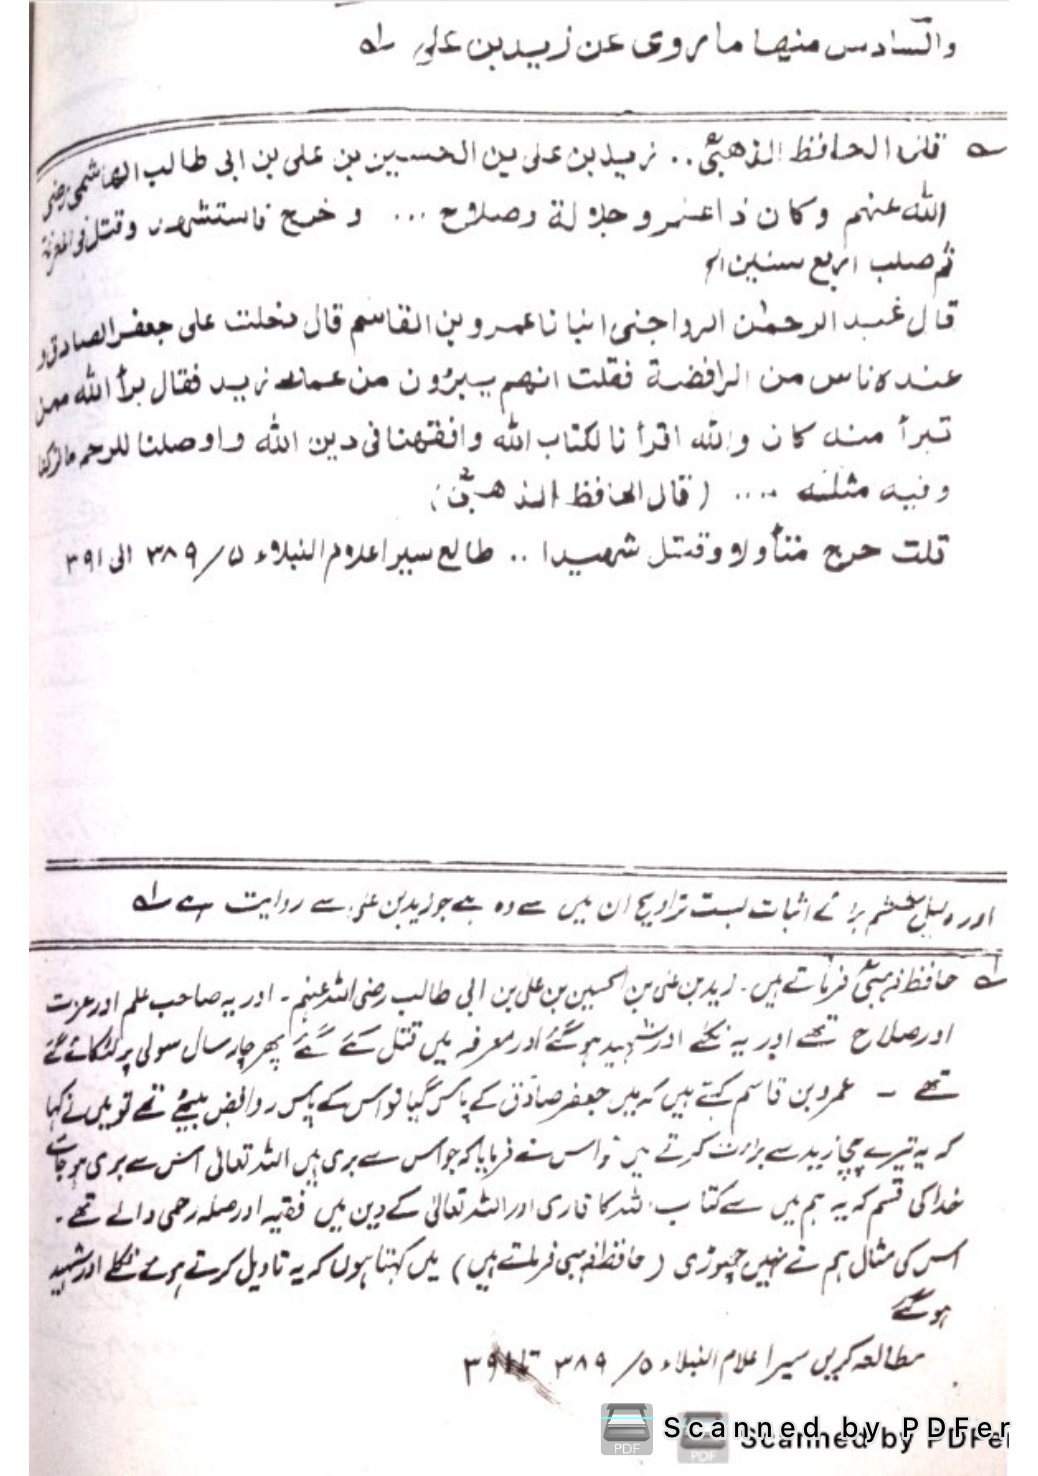 والسادس منها ما يروى عن زيد بن علي لہ
لہ قال الحافظ الذهبیؒ .. زيد بن علی بن الحسين بن علی بن ابی طالب الهاشمی رضی
الله عنهم وكان ذا علم وجلالة وصلاح ... وخرج فاستشهد وقتل
ثم صلب اربع سنين الخ
قال عبد الرحمٰن الرواجنی انبانا عمرو بن القاسم قال دخلت علی جعفر الصادق و
عنده ناس من الرافضة فقلت انهم يبرؤن من عمك زيد فقال برأ الله ممن
تبرأ منه كان والله اقرأنا لكتاب الله وافقهنا فی دين الله واوصلنا للرحم ما تركنا
وفيه مثله .... (قال الحافظ الذهبیؒ)
قلت خرج متأولا وقتل شهيدا .. طالع سير اعلام النبلاء ۵/ ۳۸۹ الی ۳۹۱
اور دلیل ششم برائے اثبات بست تراویح ان میں سے وہ ہے جو زید بن علی سے روایت ہے لہ
لہ حافظ ذہبیؒ فرماتے ہیں۔ زید بن علی بن الحسین بن علی بن ابی طالب رضی اللہ عنہم۔ اور یہ صاحب علم اور عزت
اور صلاح تھے اور یہ نکلے اور شہید ہو گئے اور معرفہ میں قتل کئے گئے پھر چار سال سولی پر لٹکائے گئے
تھے ۔ عمرو بن قاسم کہتے ہیں کہ میں جعفر صادق کے پاس گیا تو اس کے پاس روافض بیٹھے تھے تو میں نے کہا
کہ یہ تیرے چچا زید سے برات کرتے ہیں تو اس نے فرمایا کہ جو اس سے بری ہیں اللہ تعالی اس سے بری ہو جائے
خدا کی قسم کہ یہ ہم میں سے کتاب اللہ کا قاری اور اللہ تعالیٰ کے دین میں فقیہ اور صلہ رحمی والے تھے۔
اس کی مثال ہم نے نہیں چھوڑی (حافظ ذہبی فرماتے ہیں) میں کہتا ہوں کہ یہ تاویل کرتے ہوئے نکلے اور شہید
ہو گئے
مطالعہ کریں سیر اعلام النبلاء ۵/ ۳۸۹ تا ۳۹۱
Scanned by PDFer
Scanned by PDFer
PDF
PDF